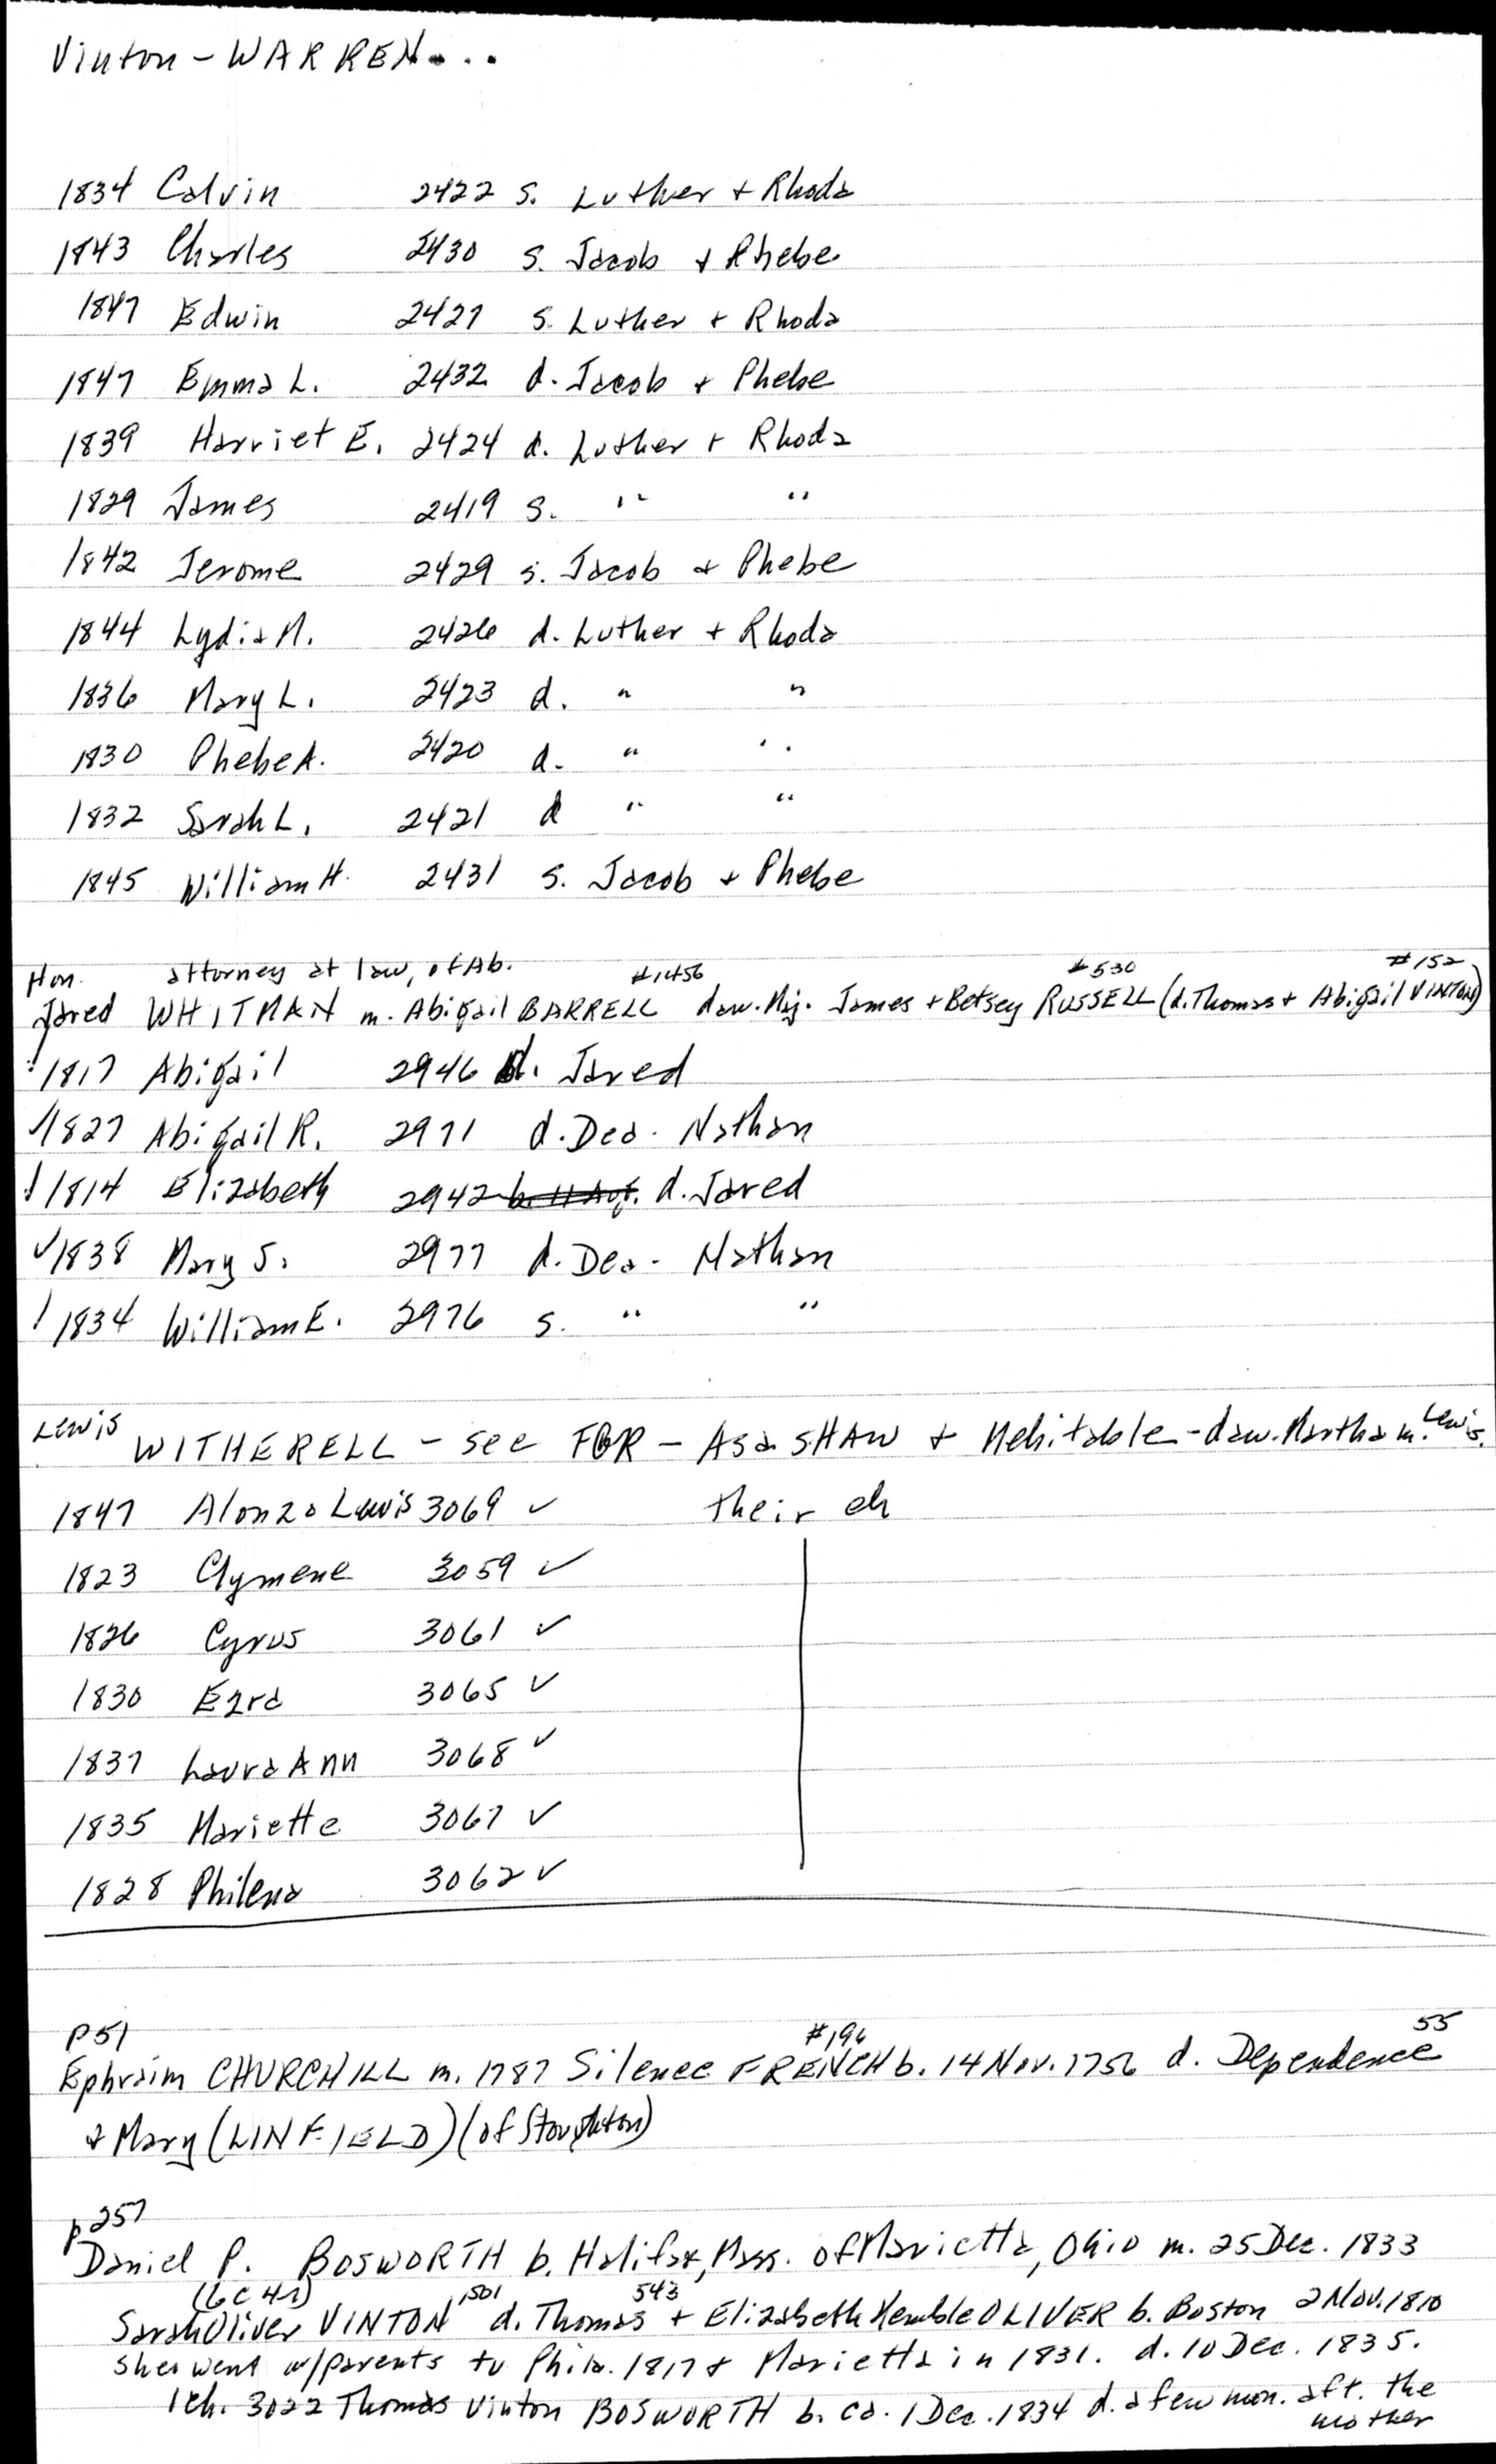 Vinton - WARREN...
1834 Calvin 2422 s. Luther + Rhoda
1843 Charles 2430 s. Jacob + Phebe
1847 Edwin 2427 s. Luther + Rhoda
1847 Emma L. 2432 d. Jacob + Phebe
1839 Harriet E. 2424 d. Luther + Rhoda
1829 James 2419 s. " "
1842 Jerome 2429 s. Jacob + Phebe
1844 Lydia M. 2426 d. Luther + Rhoda
1836 Mary L. 2423 d. " "
1830 Phebe A. 2420 d. " "
1832 Sarah L. 2421 d " "
1845 William H. 2431 s. Jacob + Phebe
Hon. attorney at law, of Ab. #1456 #530 #152
Jared WHITMAN m. Abigail BARRELL daw. Maj. James + Betsey RUSSELL (d. Thomas + Abigail VINTON)
! 1817 Abigail 2946 d. Jared
✓ 1827 Abigail R. 2971 d. Dea. Nathan
! 1814 Elizabeth 2942 d. Jared
✓ 1838 Mary S. 2977 d. Dea. Nathan
! 1834 William E. 2976 s. " "
Lewis WITHERELL - see FOR - Asa SHAW + Mehitable - daw. Martha m. Lewis.
1847 Alonzo Lewis 3069 ✓ their ch
1823 Clymene 3059 ✓
1826 Cyrus 3061 ✓
1830 Ezra 3065 ✓
1837 Laura Ann 3068 ✓
1835 Mariette 3067 ✓
1828 Philena 3062 ✓
p 51 #196 55
Ephraim CHURCHILL m. 1787 Silence FRENCH b. 14 Nov. 1756 d. Dependence
+ Mary (LINFIELD) (of Stoughton)
p 257
Daniel P. BOSWORTH b. Halifax, Mass. of Marietta, Ohio m. 25 Dec. 1833
1501 543
Sarah Oliver VINTON d. Thomas + Elizabeth Kemble OLIVER b. Boston 2 Nov. 1810
She went w/parents to Phila. 1817 + Marietta in 1831. d. 10 Dec. 1835.
1 ch. 3022 Thomas Vinton BOSWORTH b. ca. 1 Dec. 1834 d. a few mon. aft. the
mother